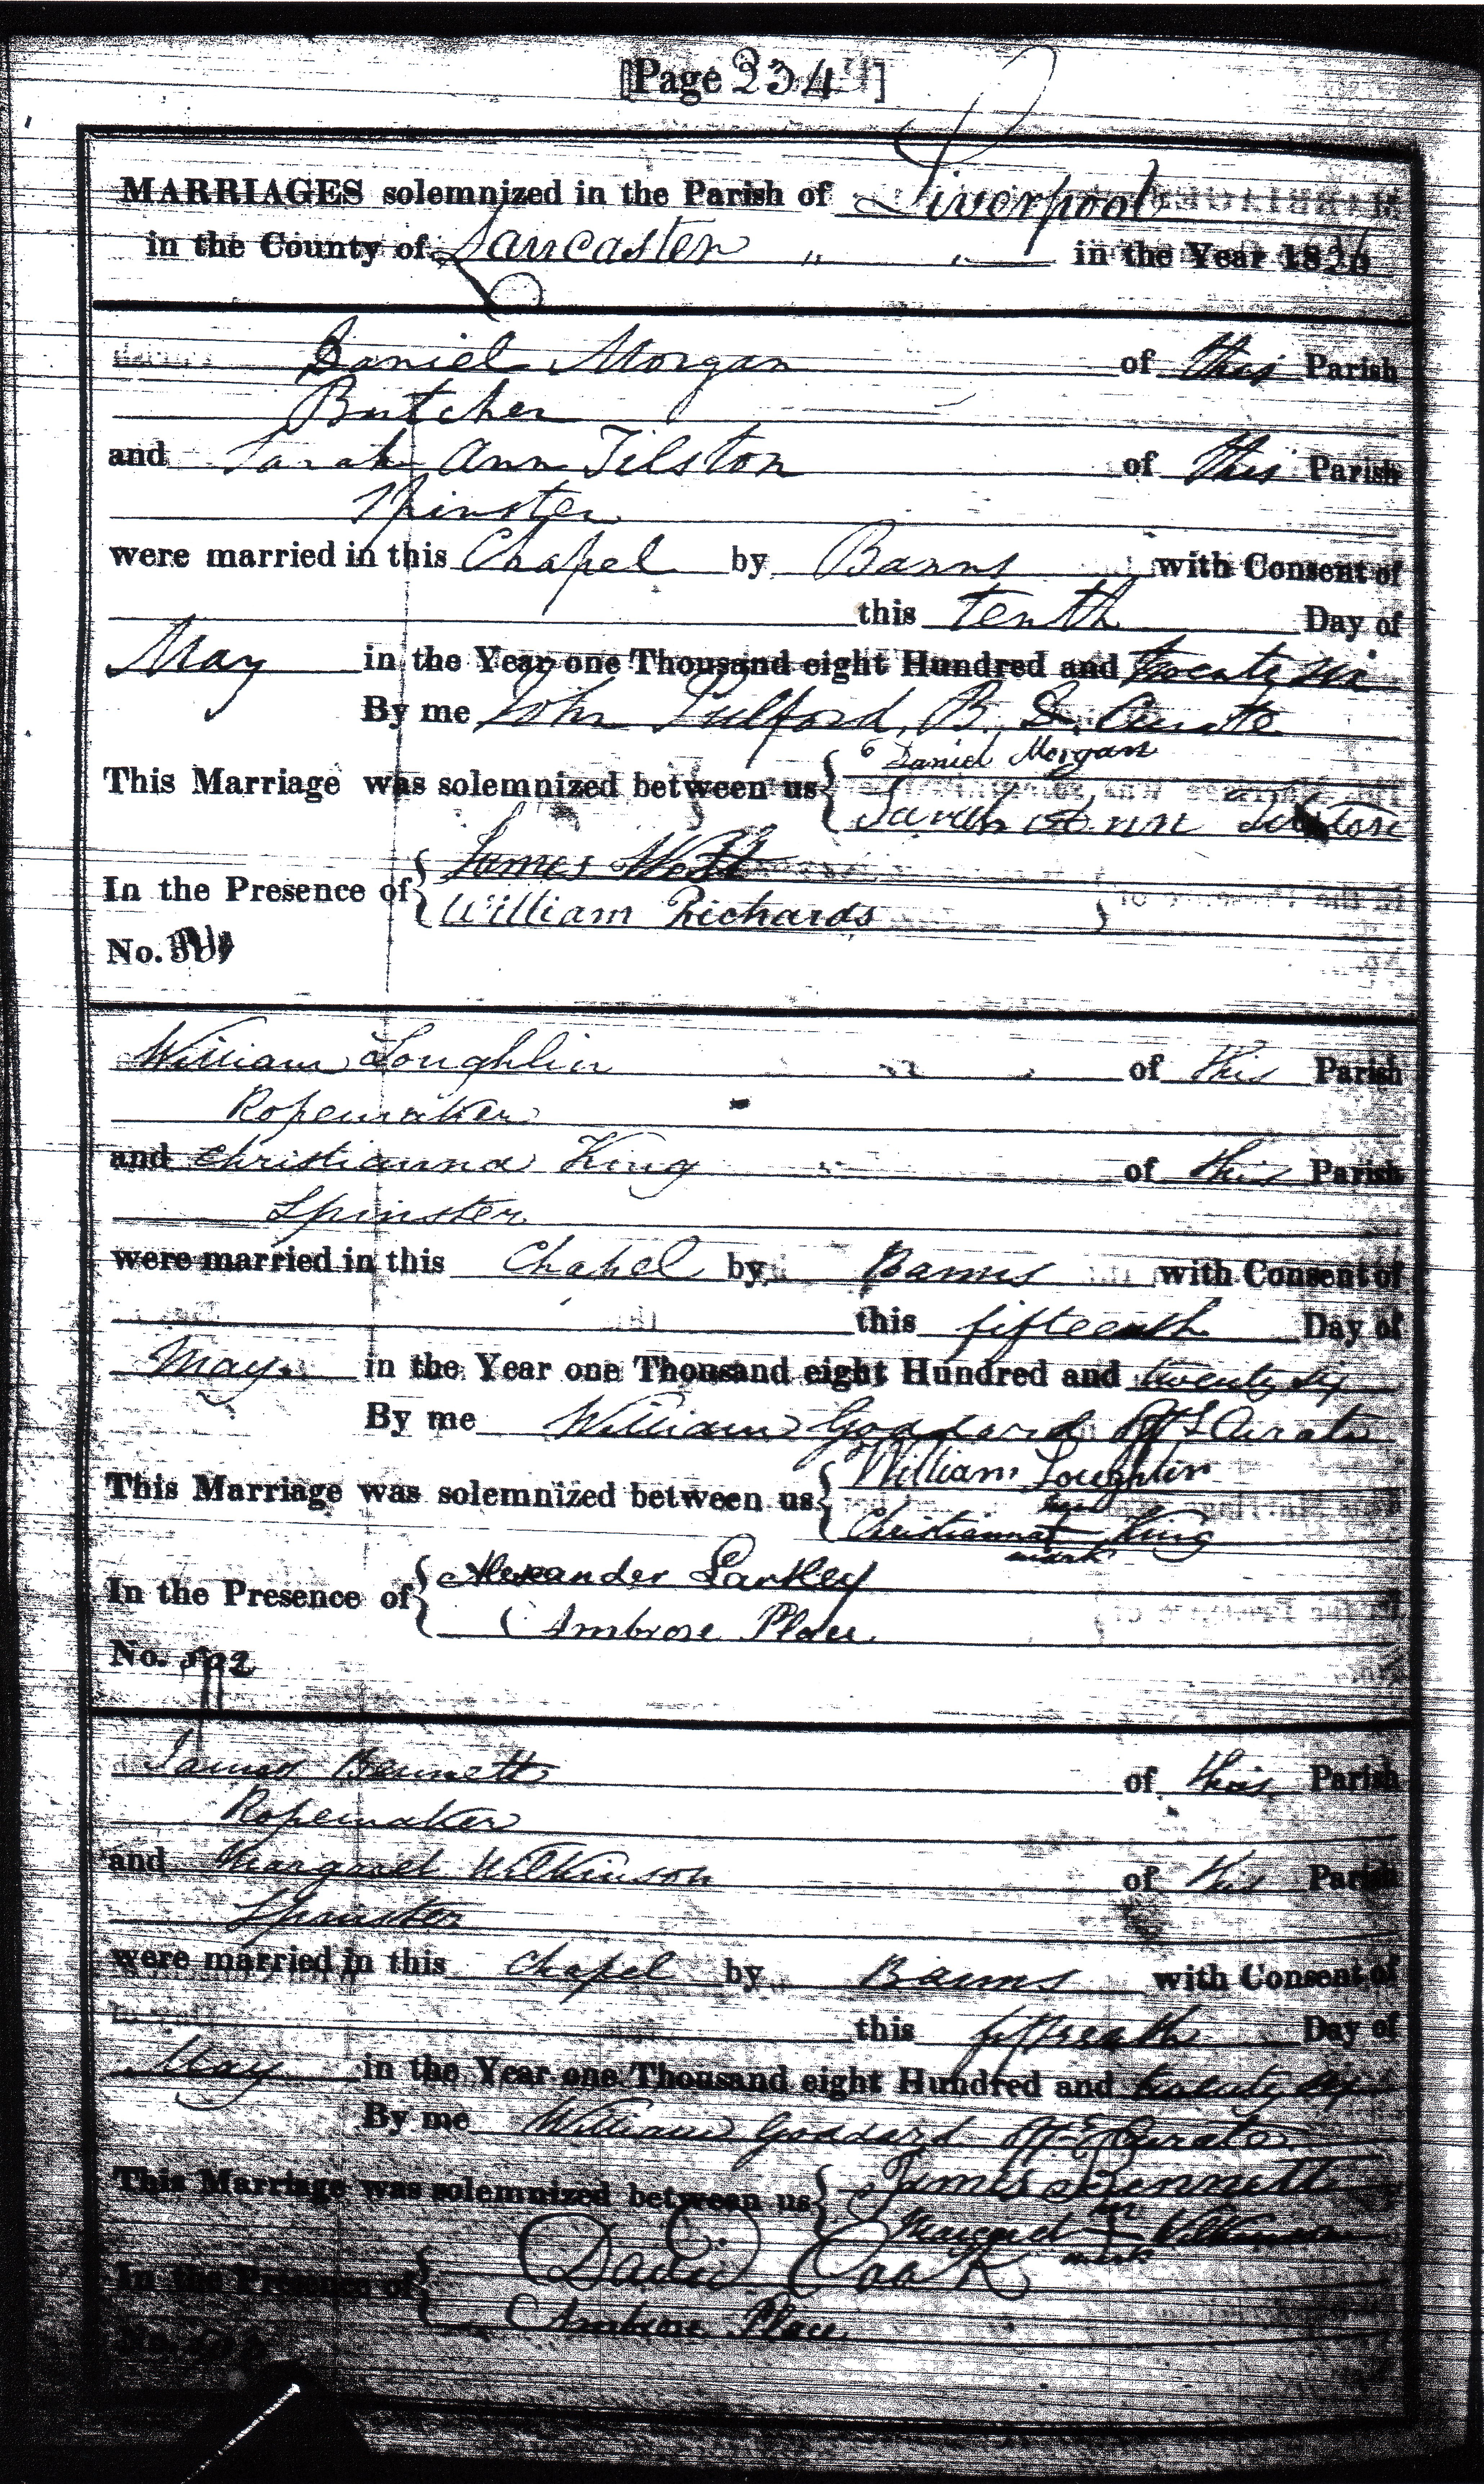 [Page 234]
MARRIAGES solemnized in the Parish of Liverpool
in the County of Lancaster " " in the Year 1826
Daniel Morgan of this Parish
Butcher
and Sarah Ann Tilston of this Parish
Spinster
were married in this Chapel by Banns with Consent of
this tenth Day of
May in the Year one Thousand eight Hundred and twenty six
By me John Fulford, Curate
This Marriage was solemnized between us { Daniel Morgan
Sarah Ann
In the Presence of { James West
William Richards
No.
William Loughlin of this Parish
Ropemaker
and Christianna King of this Parish
Spinster
were married in this Chapel by Banns with Consent of
this fifteenth Day of
May. in the Year one Thousand eight Hundred and twenty six
By me William Goddard Curate
This Marriage was solemnized between us { William Loughlin
her
Christianna + King
mark
In the Presence of { Alexander Larkey
Ambrose Place
No.
James Bennett of this Parish
Ropemaker
and Margaret Wilkinson of this Parish
Spinster
were married in this Chapel by Banns with Consent of
this fifteenth Day of
May in the Year one Thousand eight Hundred and twenty six
By me William Goddard Curate
This Marriage was solemnized between us { James Bennett
her
Margaret + Wilkinson
mark
In the Presence of { David Cook
Ambrose Place
No.